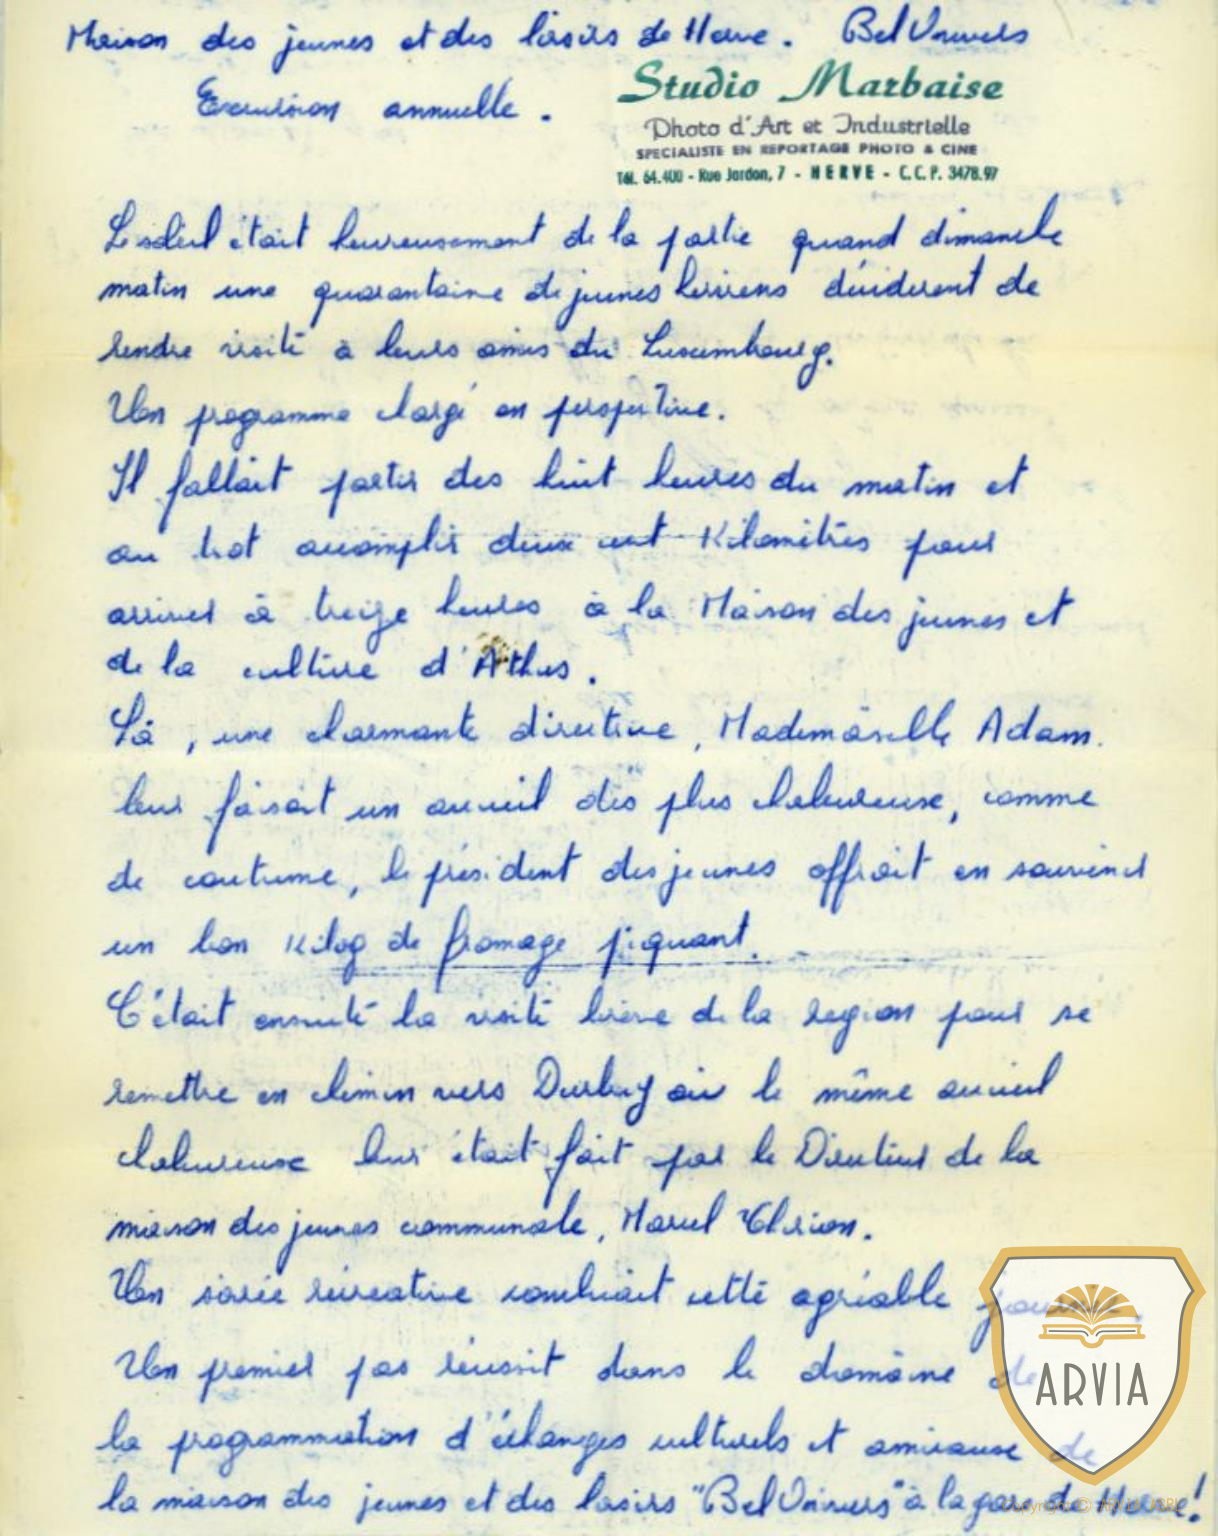 Maison des jeunes et des loisirs de Herve. Bel Univers
Excursion annuelle.
Studio Marbaise
Photo d'Art et Industrielle
SPECIALISTE EN REPORTAGE PHOTO & CINE
Tél. 64.400 - Rue Jardon, 7 - HERVE - C.C.P. 3478.97
Le soleil était heureusement de la partie quand dimanche
matin une quarantaine de jeunes herviens décidèrent de
rendre visite à leurs amis du Luxembourg.
Un programme chargé en perspective.
Il fallait partir dès huit heures du matin et
au trot accomplir deux cent Kilomètres pour
arriver à treize heures à la Maison des jeunes et
de la culture d'Athus.
Là, une charmante directrice, Mademoiselle Adam.
leur faisait un accueil des plus chaleureuse, comme
de coutume, le président des jeunes offrait en souvenir
un bon Kilog de fromage piquant.
C'était ensuite la visite brève de la region pour se
remettre en chemin vers Durbuy où le même accueil
chaleureuse leur était fait par le Directeur de la
maison des jeunes communale, Marcel Clarion.
Un soirée récréative combiait cette agréable journée.
Un premier pas réussit dans le domaine de
la programmation d'échanges culturels et amicause de
la maison des jeunes et des loisirs "Bel Univers" à la gare de Herve!
ARVIA